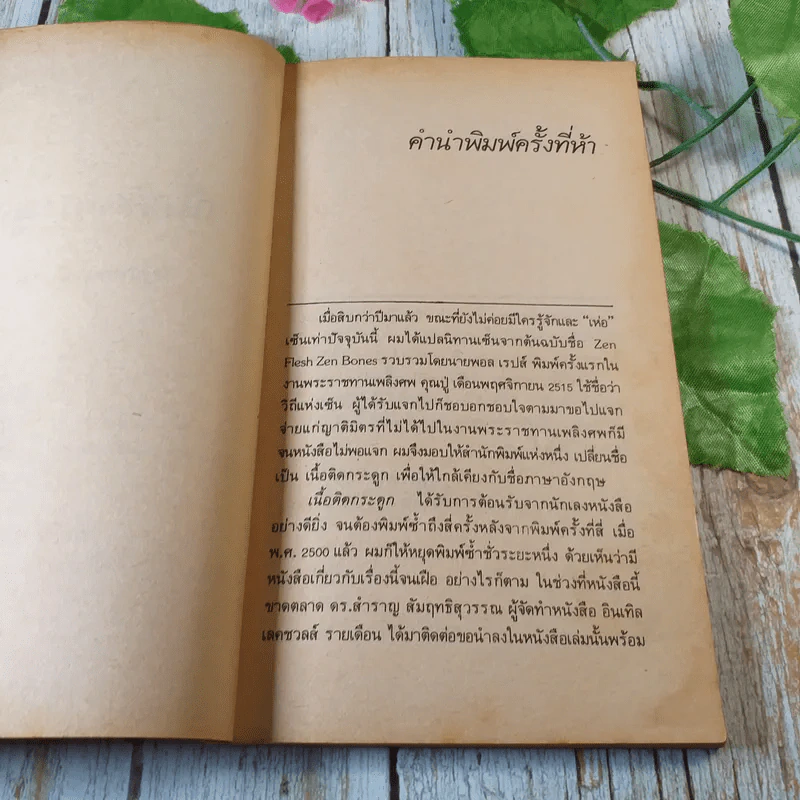 คำนำพิมพ์ครั้งที่ห้า
เมื่อสิบกว่าปีมาแล้ว ขณะที่ยังไม่ค่อยมีใครรู้จักและ “เห่อ”
เซ็นเท่าปัจจุบันนี้ ผมได้แปลนิทานเซ็นจากต้นฉบับชื่อ Zen
Flesh Zen Bones รวบรวมโดยนายพอล เรปส์ พิมพ์ครั้งแรกใน
งานพระราชทานเพลิงศพ คุณปู่ เดือนพฤศจิกายน 2515 ใช้ชื่อว่า
วิถีแห่งเซ็น ผู้ได้รับแจกไปก็ชอบอกชอบใจตามมาขอไปแจก
จ่ายแก่ญาติมิตรที่ไม่ได้ไปในงานพระราชทานเพลิงศพก็มี
จนหนังสือไม่พอแจก ผมจึงมอบให้สำนักพิมพ์แห่งหนึ่ง เปลี่ยนชื่อ
เป็น เนื้อติดกระดูก เพื่อให้ใกล้เคียงกับชื่อภาษาอังกฤษ
เนื้อติดกระดูก ได้รับการต้อนรับจากนักเลงหนังสือ
อย่างดียิ่ง จนต้องพิมพ์ซ้ำถึงสี่ครั้งหลังจากพิมพ์ครั้งที่สี่ เมื่อ
พ.ศ. 2500 แล้ว ผมก็ให้หยุดพิมพ์ซ้ำชั่วระยะหนึ่ง ด้วยเห็นว่ามี
หนังสือเกี่ยวกับเรื่องนี้จนเฝือ อย่างไรก็ตาม ในช่วงที่หนังสือนี้
ขาดตลาด ดร.สำราญ สัมฤทธิสุวรรณ ผู้จัดทำหนังสือ อินเทิล
เลคชวลส์ รายเดือน ได้มาติดต่อขอนำลงในหนังสือเล่มนั้นพร้อม